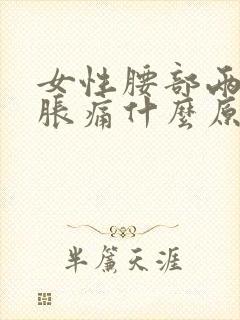 女性腰部兩
脹痛什麼原
半簾天涯